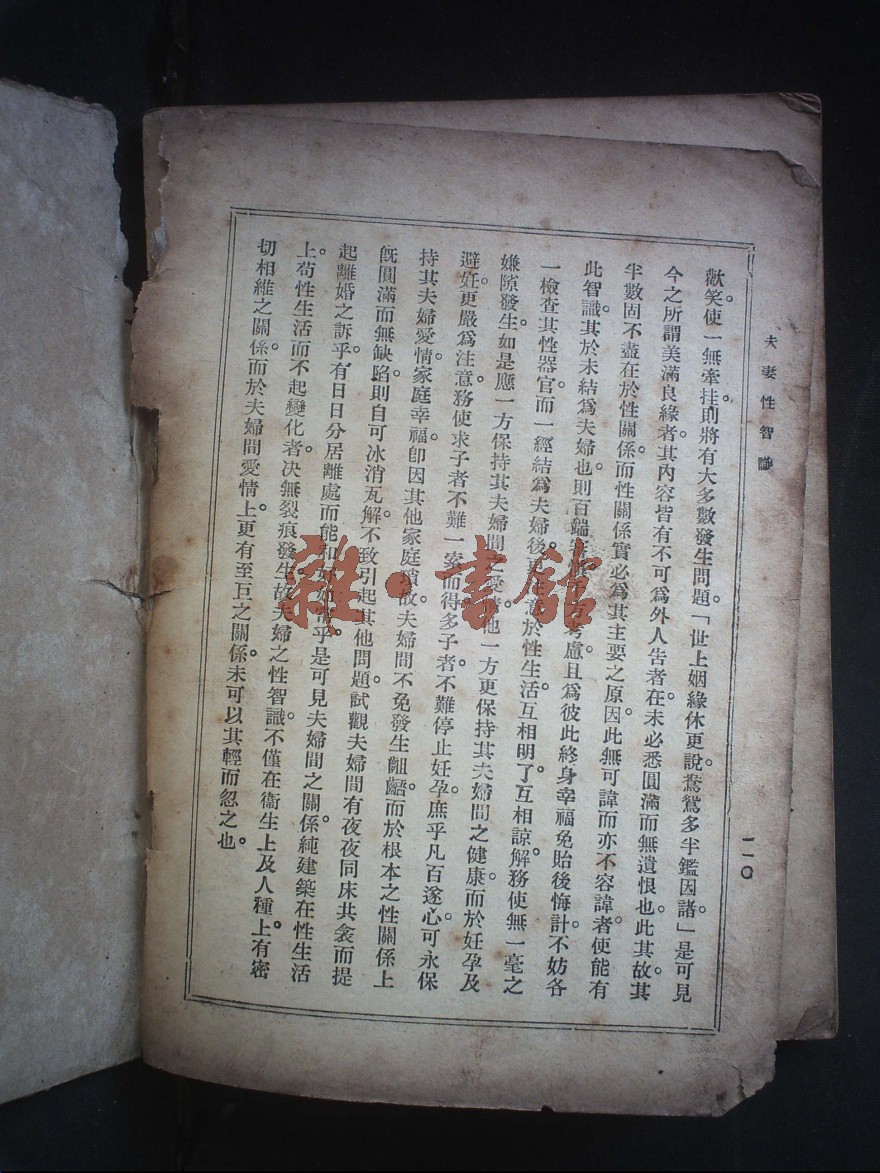 夫妻性智識
一一〇
歡笑。使一無牽挂。則將有大多數發生問題「世上姻緣休更說。鴛鴦多半鑑因諸」是可見
今之所謂美滿良緣者。其內容皆有不可為外人告者在。未必悉圓滿而無遺恨也。此其故其
半數固不盡在於性關係。而性關係實必為其主要之原因。此無可諱而亦不容諱者。使能有
此智識。其於未結為夫婦也。則百端考慮。且為彼此終身幸福免貽後悔計。不妨各
一檢查其性器官。而一經結為夫婦後。意於性生活。互相明了。互相諒解。務使無一毫之
嫌隙發生。如是應一方保持其夫婦間之愛。他一方更保持其夫婦間之健康。而於妊孕及
避妊。更嚴為注意。務使求子者不難一索而得。多子者不難停止妊孕。庶乎凡百遂心。可永保
持其夫婦愛情。家庭幸福。卽因其他家庭故。夫婦間不免發生齟齬。而於根本之性關係上
旣圓滿而無缺陷。則自可冰消瓦解。不致引起其他問題。試觀夫婦間有夜夜同床共衾而提
起離婚之訴乎。有日日分居離處而能和好如常乎。是可見夫婦間之關係。純建築在性生活
上。苟性生活而不起變化者。決無裂痕發生。故夫婦之性智識。不僅在衞生上及人種上有密
切相維之關係。而於夫婦間愛情上。更有至巨之關係。未可以其輕而忽之也。
雜·書館